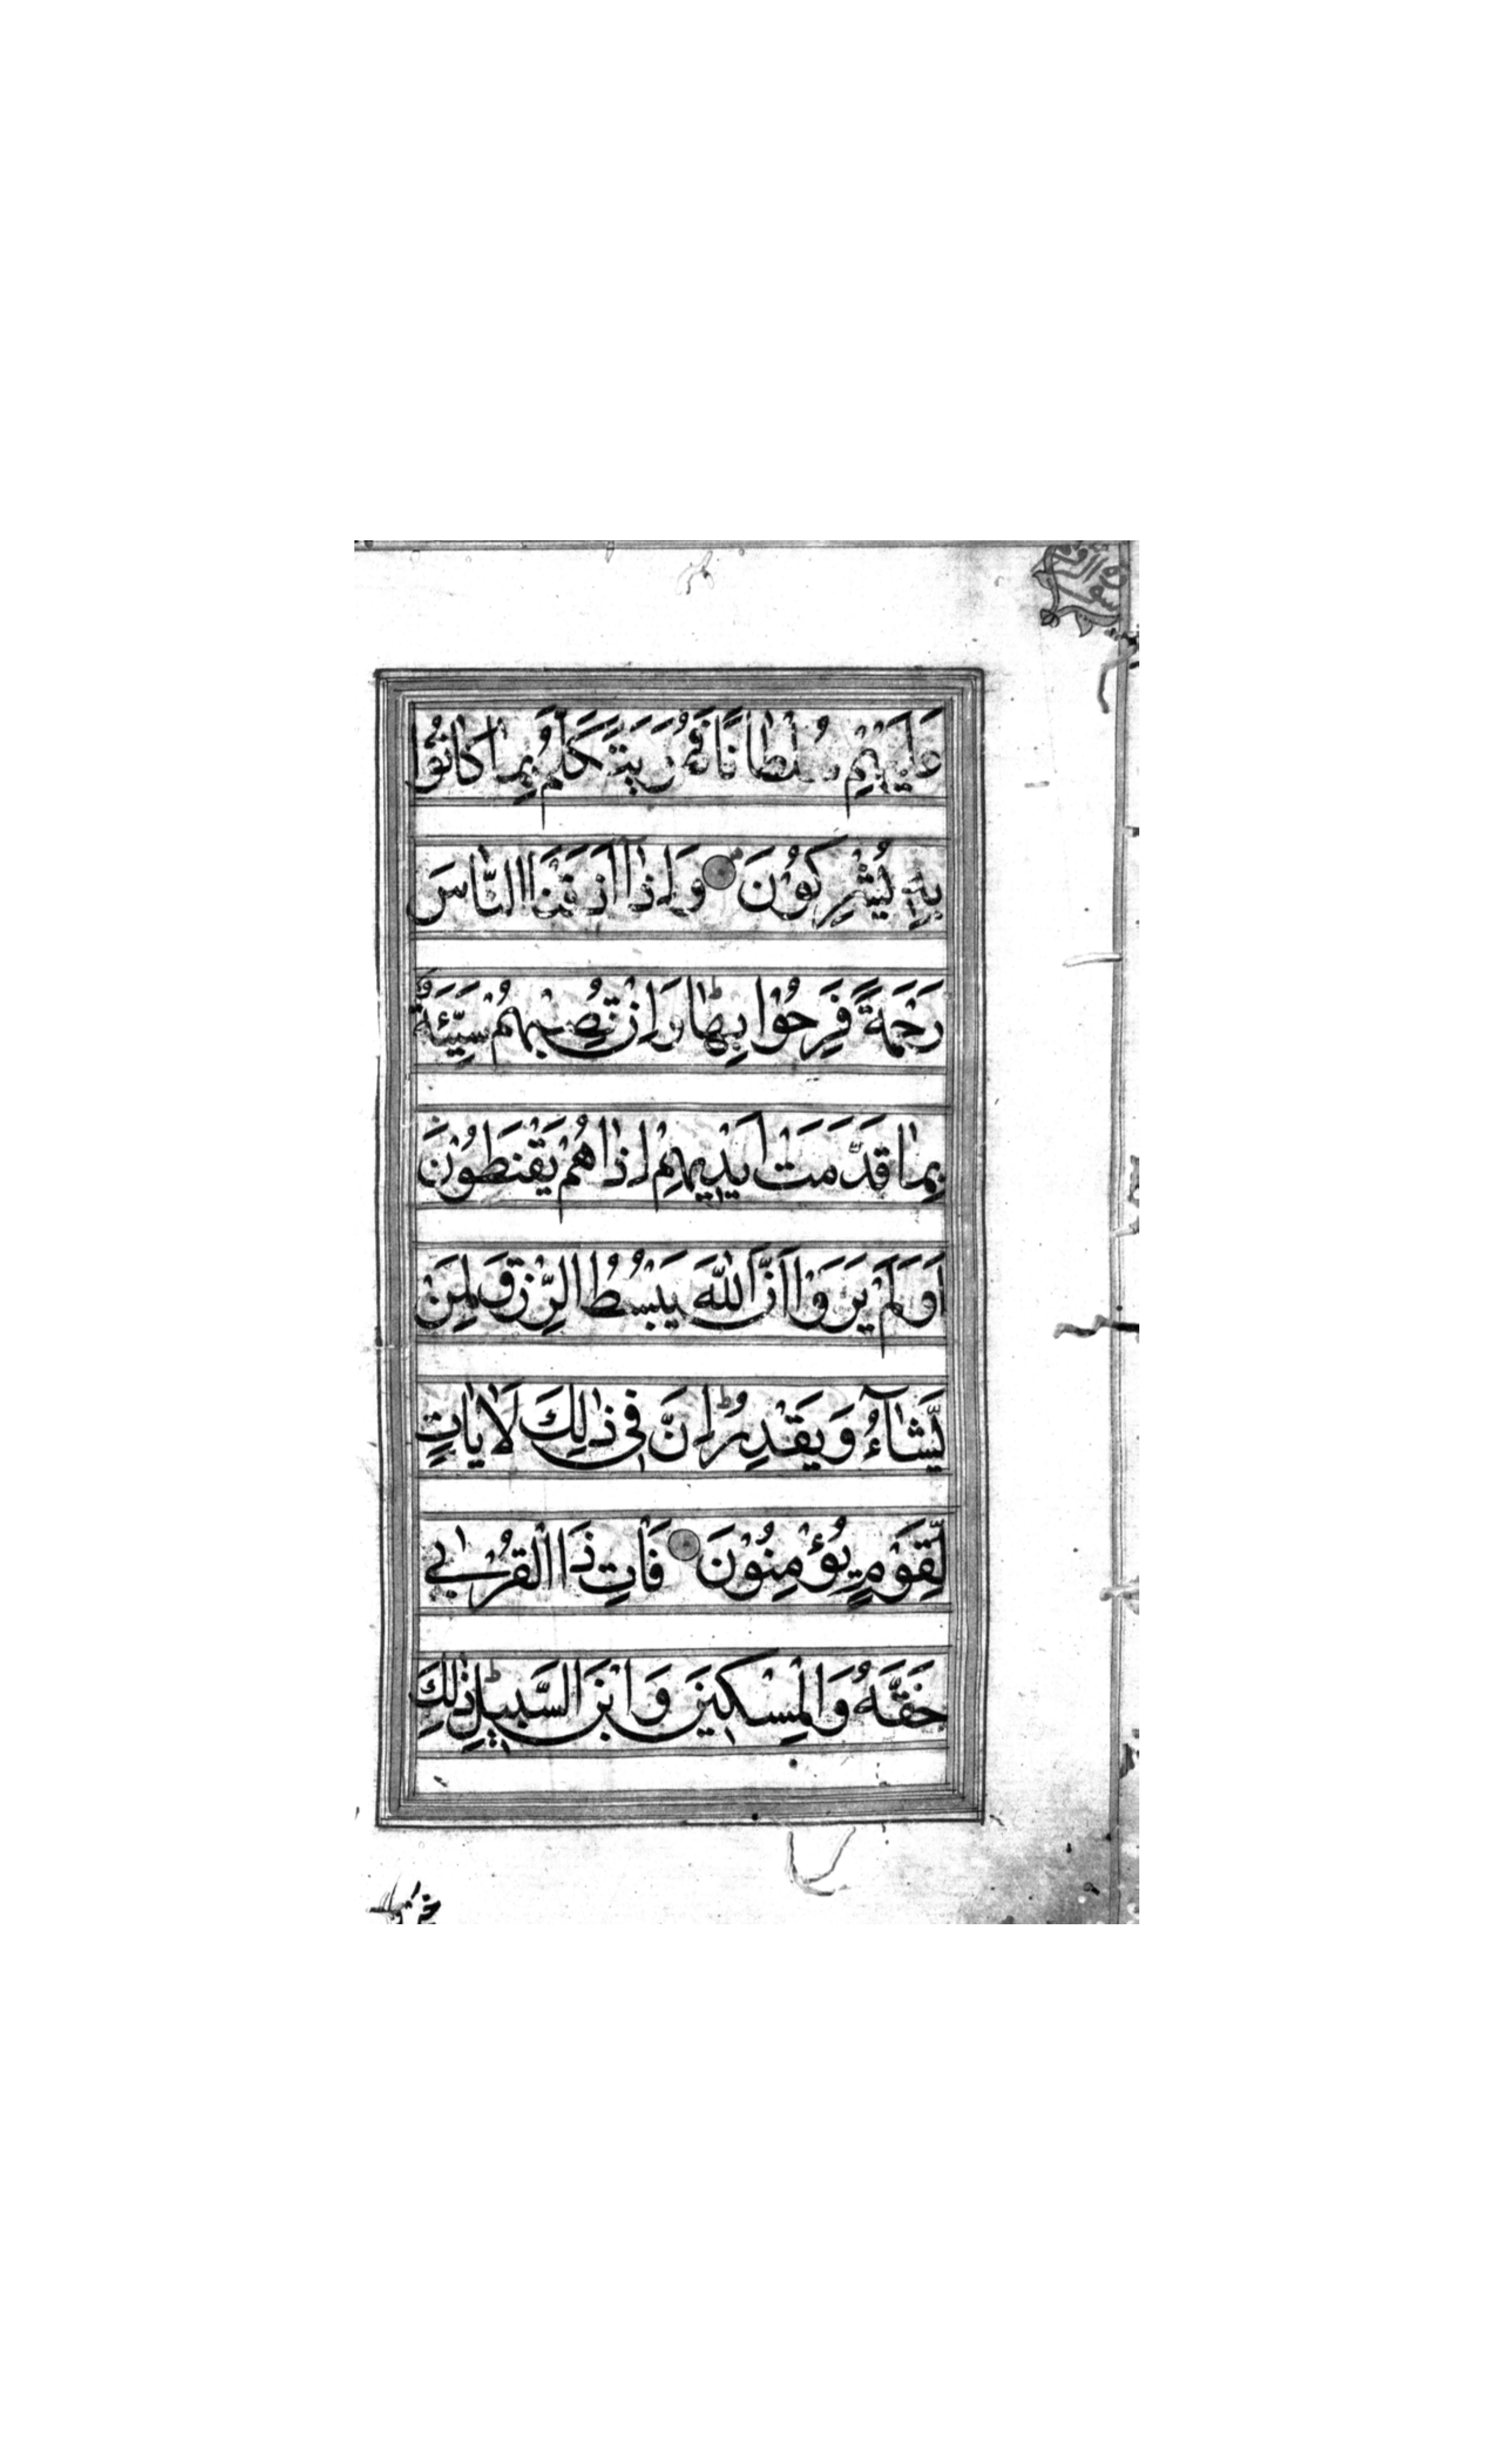 عَلَيْهِمْ سُلْطَانًا فَهُوَ يَتَكَلَّمُ بِمَا كَانُوْا
بِهٖ يُشْرِكُوْنَ وَاِذَآ اَذَقْنَا النَّاسَ
رَحْمَةً فَرِحُوْا بِهَا ط وَاِنْ تُصِبْهُمْ سَيِّئَةٌ
بِمَا قَدَّمَتْ اَيْدِيْهِمْ اِذَا هُمْ يَقْنَطُوْنَ
اَوَلَمْ يَرَوْا اَنَّ اللّٰهَ يَبْسُطُ الرِّزْقَ لِمَنْ
يَّشَآءُ وَيَقْدِرُ ط اِنَّ فِي ذٰلِكَ لَاٰيَاتٍ
لِّقَوْمٍ يُؤْمِنُوْنَ فَاٰتِ ذَا الْقُرْبٰي
حَقَّهٗ وَالْمِسْكِيْنَ وَابْنَ السَّبِيْلِ ط ذٰلِكَ